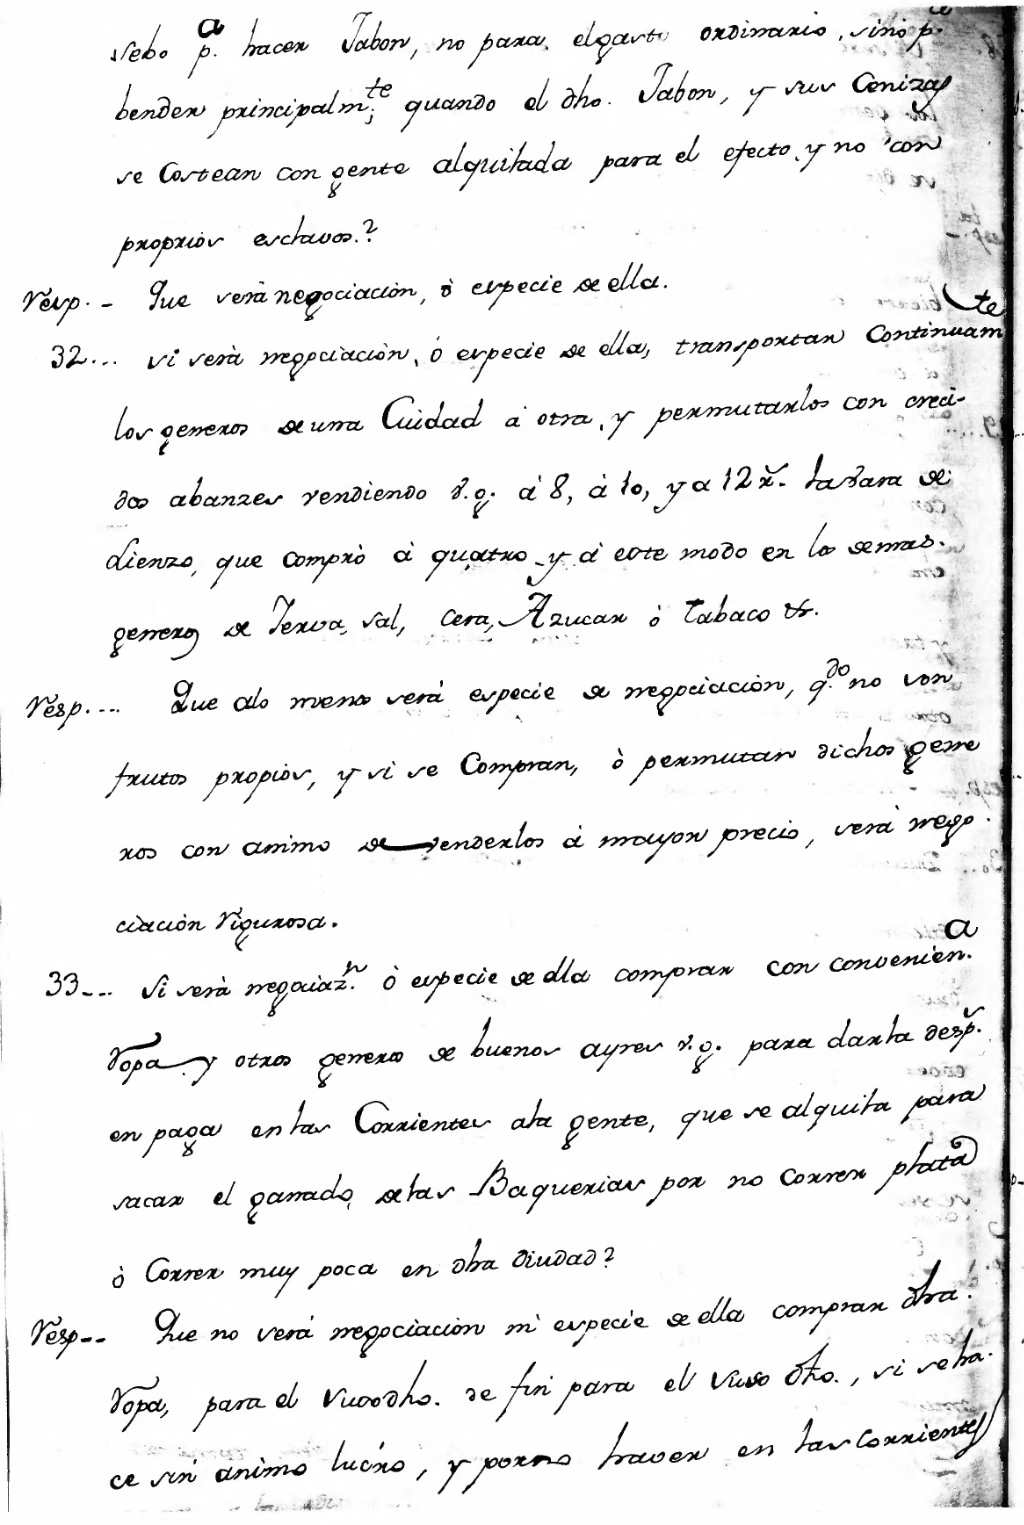 sebo p.ª hacer Jabon, no para, el gasto ordinario, sino p.ª
bender principalm.te quando el dho. Jabon, y sus Cenizas
se Costean con gente alquilada para el efecto, y no con
proprios esclavos.?
Resp. - Que será negociación, ò especie de ella.
32... si será negociación, ó especie de ella, transportar Continuam.te
los generos de una Ciudad á otra, y permutarlos con creci-
dos abanzes vendiendo v.g. á 8, à 10, y a 12 r.s la vara de
Lienzo, que comprò á quatro y á este modo en los demas.
generos de Yerva, sal, cera, Azucar ò tabaco &.
Resp.... Que alo menos será especie de negociación, q.do no son
frutos propios, y si se Compran, ò permutan dichos gene
ros con animo de venderlos á mayor precio, será nego
ciación rigurosa.
33... si será negociaz.n ò especie de ella comprar con convenien.a
Ropa y otros generos de buenos ayres v.g. para darla desp.s
en paga en las Corrientes ala gente, que se alquila para
sacar el ganado, de las Baquerias por no correr plata
ò Correr muy poca en dha Ciudad?
Resp-- Que no será negociación ni especie de ella comprar dha.
Ropa, para el suso dho. de fin para el suso dho., si se ha-
ce sin animo lucro, y por no haver en las Corrientes